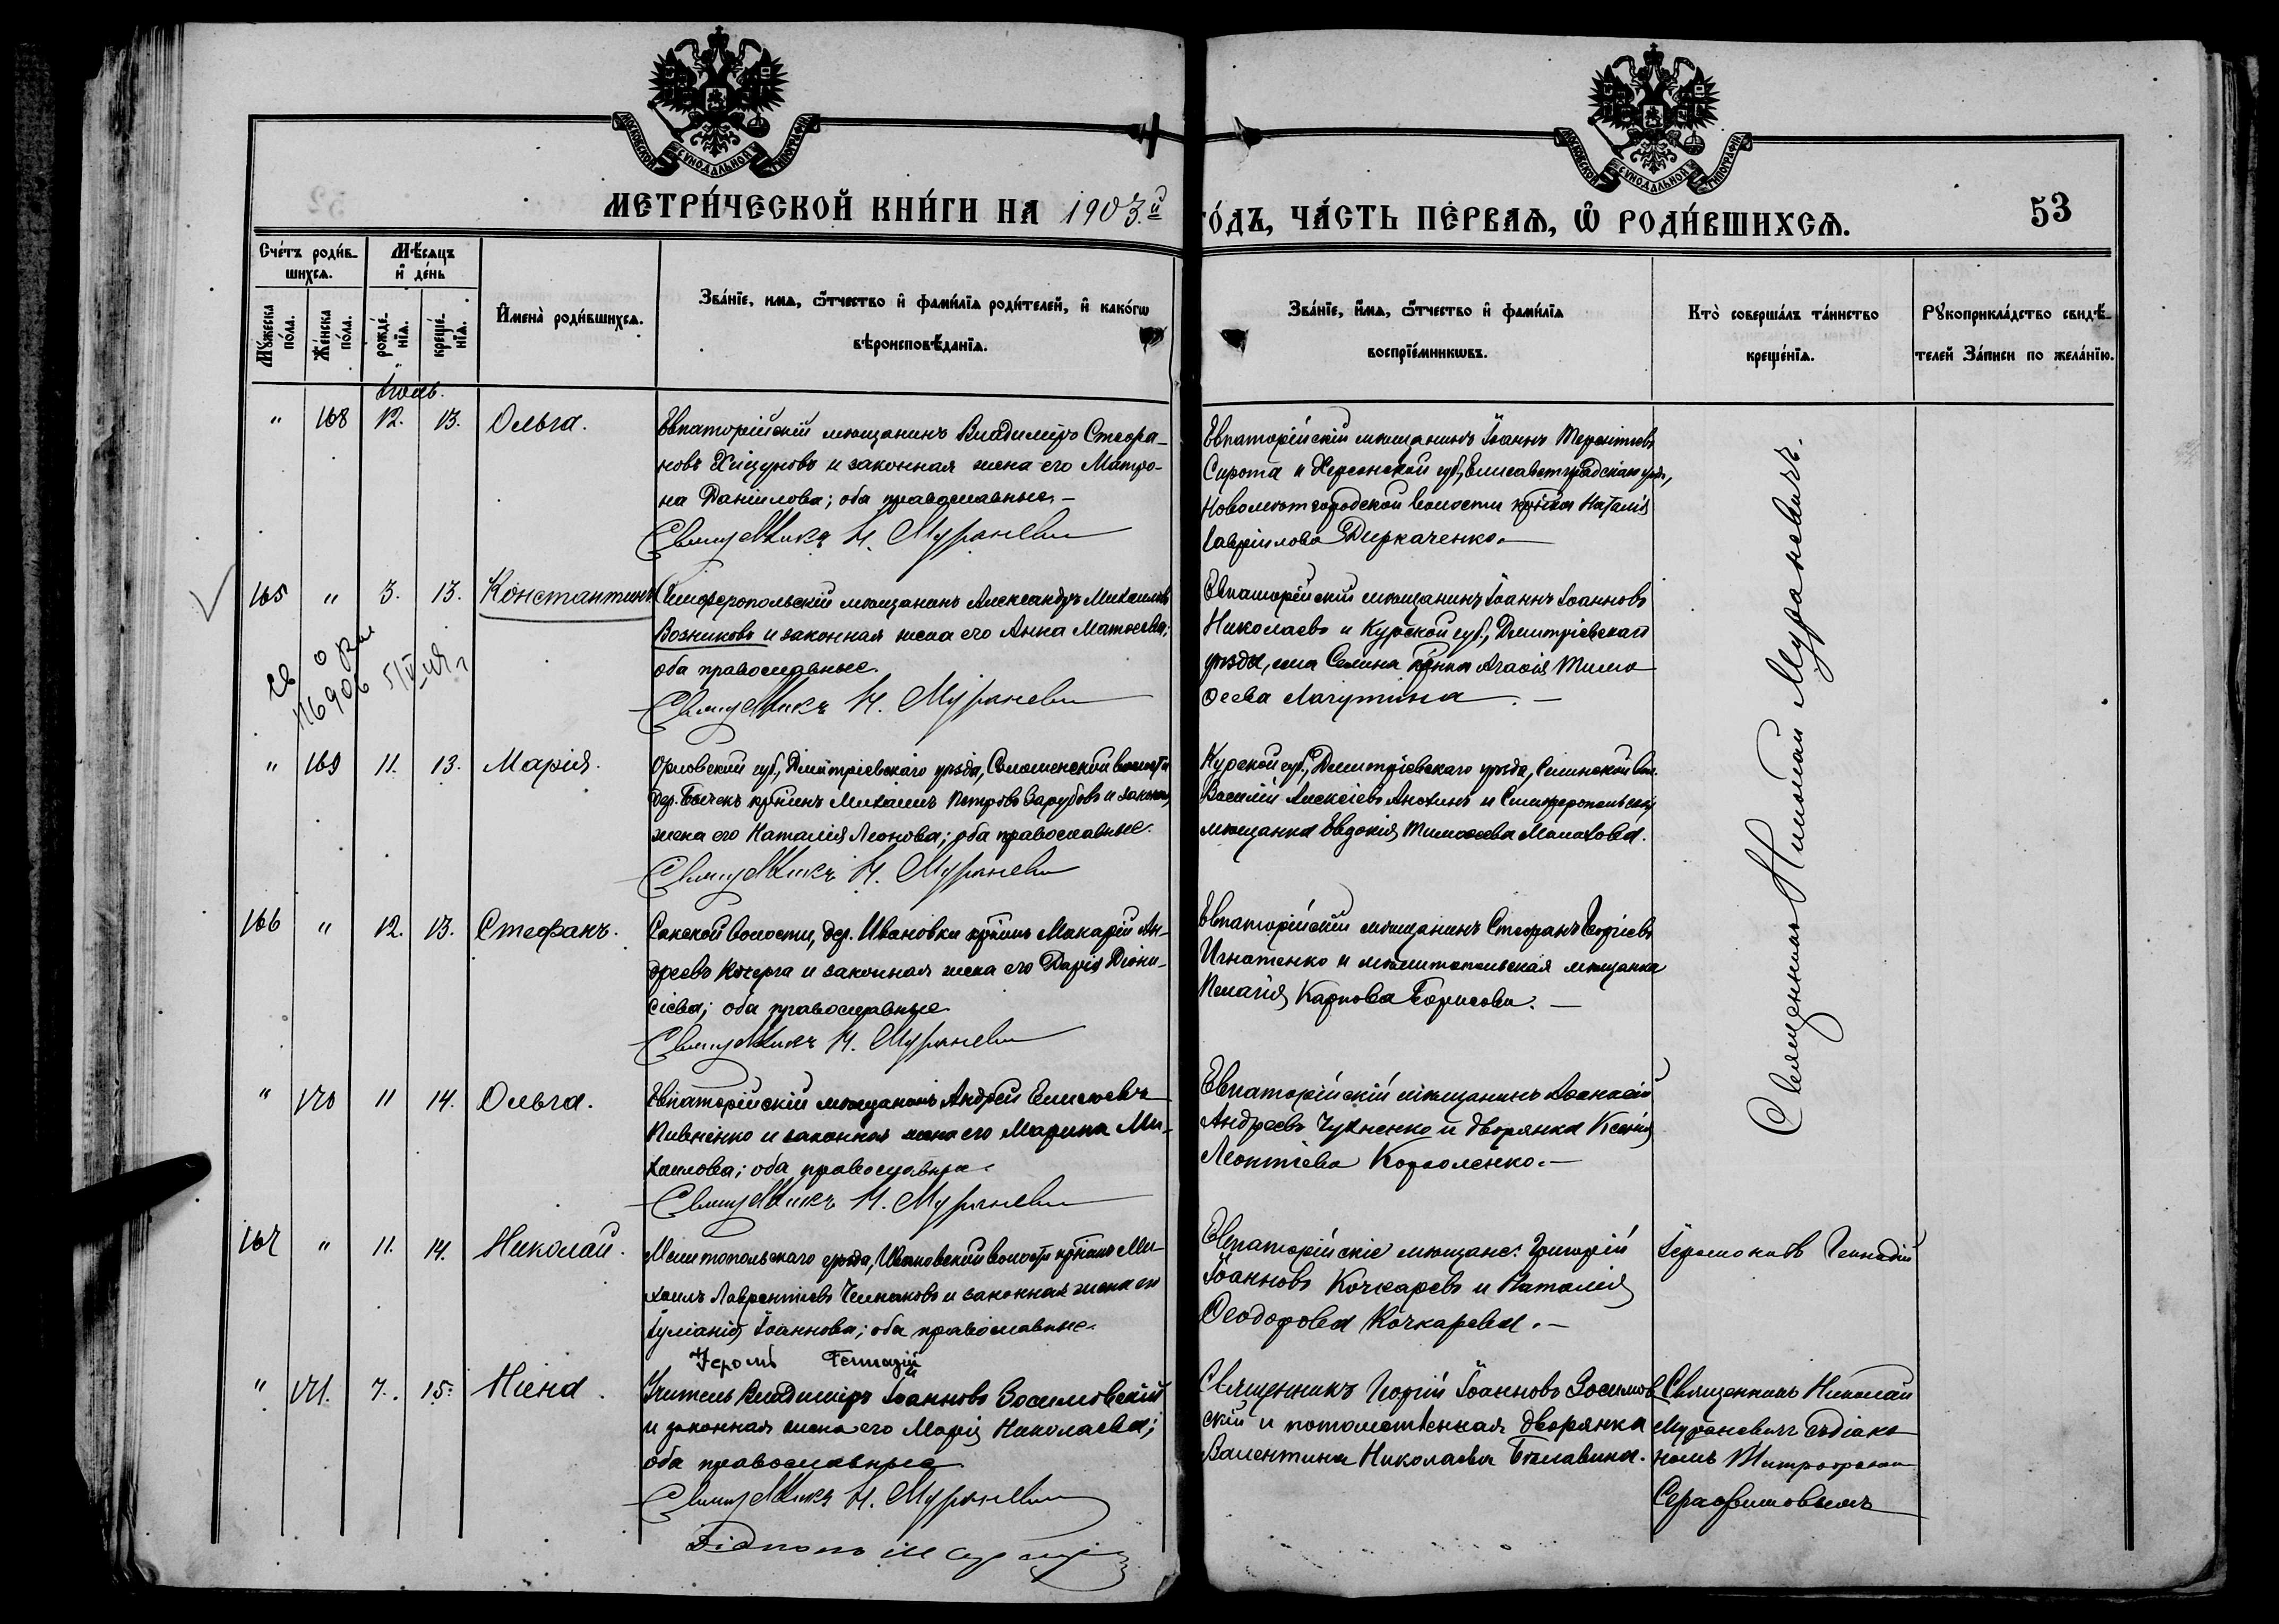 МОСКОВСКОЙ СѴНОДАЛЬНОЙ ТИПОГРАФІИ
МОСКОВСКОЙ СѴНОДАЛЬНОЙ ТИПОГРАФІИ
МЕТРИ́ЧЕСКОЙ КНИ́ГИ НА 1903.й
ГО́ДЪ, ЧА́СТЬ ПЕ́РВАѦ, Ѡ РОДИ́ВШИХСѦ.
53
Сче́тъ роди́в-
шихсѧ.
Мѣ́сѧцъ
и де́нь
Мꙋ́жеска
по́ла.
Же́нска
по́ла.
рожде́-
нїѧ.
креще́-
нїѧ.
Имена̀ роди́вшихсѧ.
Зва́нїе, имѧ, ѿчество и фами́лїѧ роди́телей, и како́гѡ
вѣроисповѣ́данїѧ.
Зва́нїе, и́мѧ, ѿчество и фами́лїѧ
воспрїе́мникѡвъ.
Кто̀ соверша́лъ та́инство
креще́нїѧ.
Рꙋкоприкла́дство свидѣ́-
телей За́писи по жела́нїю.
Іюль.
" 168 12. 13. Ольга.
Евпаторійскій мѣщанинъ Владиміръ Стефа-
новъ Хицуновъ и законная жена его Матро-
на Даніилова; оба православные.
Священникъ Н. Мураневич
Евпаторійскій мѣщанинъ Іоаннъ Терентіевъ
Сирота и Херсонской губ., Елисаветградскаго уѣз.,
волости Наталія
Гавріилова Диркаченко.
165 " 3. 13. Константинъ
Симферопольскій мѣщанинъ Александръ Михаиловъ
Возниковъ и законная жена его Анна Матѳеева;
оба православные.
Священникъ Н. Мураневич
Евпаторійскій мѣщанинъ Іоаннъ Іоанновъ
Николаевъ и Курской губ., Дмитріевскаго
уѣзда, села Селина Агафія Тимо
ѳеева Лагутина.
№ 906
" 169 11. 13. Марія.
Орловской губ., Дмитріевскаго уѣзда,
дер. Михаилъ Петровъ Зарубовъ и законная
жена его Наталія Леонова; оба православные.
Священникъ Н. Мураневич
Курской губ., Дмитріевскаго уѣзда, Селинской вол.
Василій Алексіевъ Анохинъ и Симферопольская
мѣщанка Евдокія Тимоѳеева Малахова.
166 " 12. 13. Стефанъ.
Сакской волости, дер. Ивановки Макарій Ан-
дреевъ Кочерга и законная жена его Дарія Діони-
сіева; оба православные
Священникъ Н. Мураневич
Евпаторійскій мѣщанинъ Стефанъ Георгіевъ
Игнатенко и мелитопольская мѣщанка
Пелагія Карпова Борисова.
" 170 11 14. Ольга.
Евпаторійскій мѣщанинъ Андрей Елисеевъ
Пивненко и законная жена его Марина Ми-
хаилова; оба православные.
Священникъ Н. Мураневич
Евпаторійскій мѣщанинъ Аѳанасій
Андреевъ Чухненко и дворянка Ксенія
Леонтіева Короленко.
Священникъ Николай Мураневичъ.
167 " 11. 14. Николай.
Мелитопольскаго уѣзда, Ивановской волости Ми-
хаилъ Лаврентіевъ и законная жена его
Іуліанія Іоаннова; оба православные.
Іером. Геннадій
Евпаторійскіе мѣщане: Григорій
Іоанновъ Кочкаревъ и Наталія
Ѳеодорова Кочкарева.
Іеромонахъ Геннадій
" 171. 7. 15. Нина.
Учитель Владиміръ Іоанновъ Зосимовскій
и законная жена его Марія Николаева;
оба православные
Священникъ Н. Мураневич
Діаконъ
Священникъ Георгій Іоанновъ Зосимов
скій и потомственная дворянка
Валентина Николаева Булавина.
Священникъ Николай
Мураневичъ съ діако
номъ Митрофаномъ
Серафимовымъ